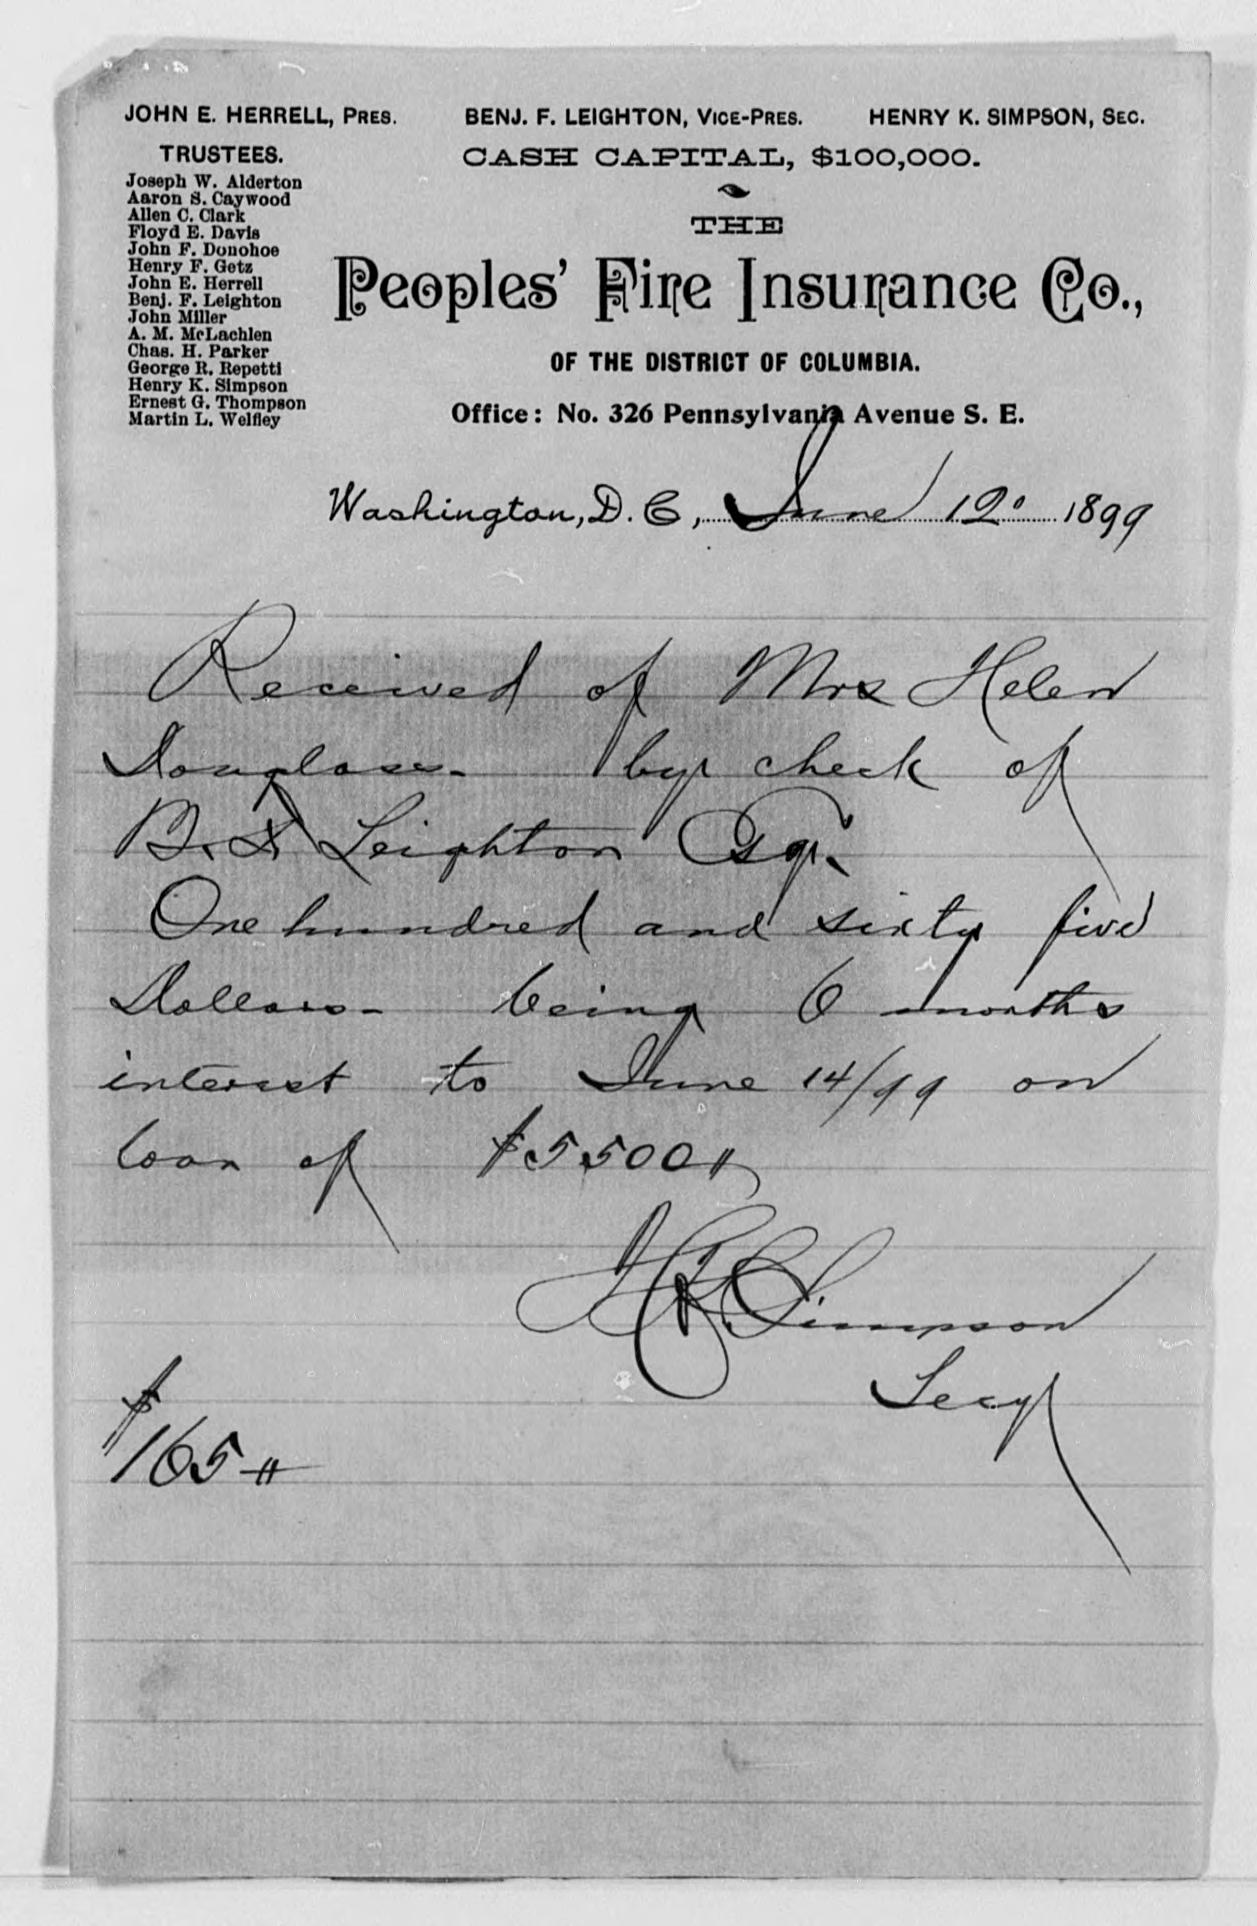 JOHN E. HERRELL, PRES. BENJ. F. LEIGHTON, VICE-PRES. HENRY K. SIMPSON, SEC.
TRUSTEES.
Joseph W. Alderton
Aaron S. Caywood
Allen C. Clark
Floyd E. Davis
John F. Donohoe
Henry F. Getz
John E. Herrell
Benj. F. Leighton
John Miller
A. M. McLachlen
Chas. H. Parker
George R. Repetti
Henry K. Simpson
Ernest G. Thompson
Martin L. Welfley
CASH CAPITAL, $100,000.
THE
Peoples' Fire Insurance Co.,
OF THE DISTRICT OF COLUMBIA.
Office: No. 326 Pennsylvania Avenue S. E.
Washington, D. C., June 12. 1899
Received of Mrs Helen
Douglass. by check of
B. F. Leighton Esq.
One hundred and sixty five
Dollars - being 6 months
interest to June 14/99 on
loan of $5500"
H K. Simpson
Secy
$165 "